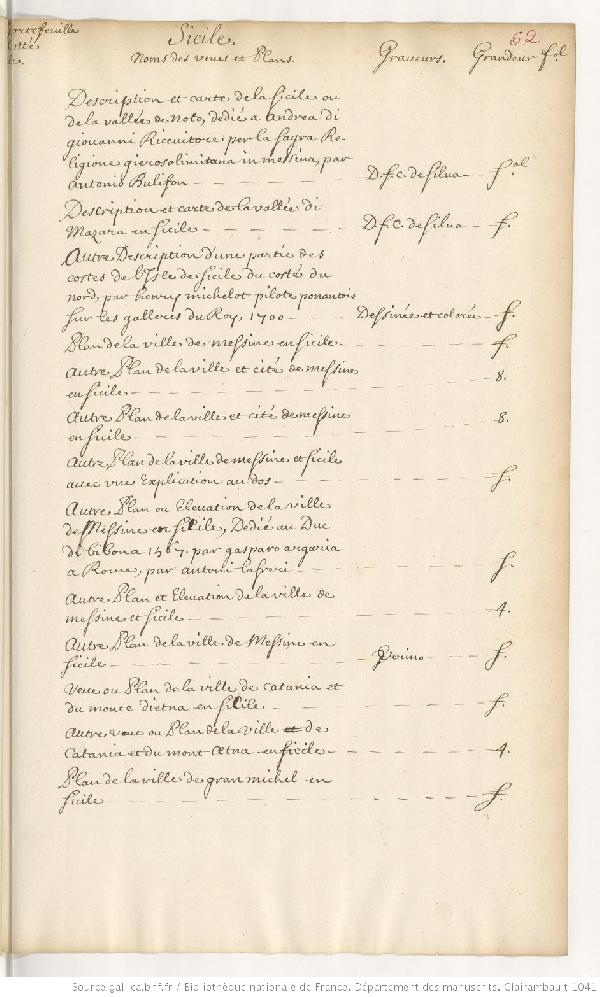 Sicile.
62
Noms des veues et Plans. Graveurs. Grandeur fol
Description et carte de la sicile ou
de la vallée de Noto, dedié a andrea di
giouanni Riceuitore per la sagra Re-
ligione gierosolimitana in messina, par
Antonio Bulifon - - - D. f. c. de silua - f.ol
Description et carte de la vallée di
Mazara en sicile - - - - D f. C. de silua - f.
Autre Description d'une partie des
costes de l'Isle de sicile du costé du
nord, par henry michelot pilote ponantois
sur les galleres du Roy, 1700 - - Dessinée et colorée - f.
Plan de la ville de messine en sicile - - - f.
Autre Plan de la ville et cité de messine
en sicile - - - 8.
Autre Plan de la ville et cité de messine
en sicile - - - 8.
Autre Plan de la ville de messine et sicile
auec vne Explication au dos - - - f.
Autre Plan ou Eleuation de la ville
de Messine en silile, Dedié au Duc
di bibona 1567. par gasparo argaria
a Rome, par antoni lafreri - - - f.
Autre Plan et Eleuation de la ville de
messine et sicile - - - 4.
Autre Plan de la ville de Messine en
sicile - - - - f.
Veue ou Plan de la ville de Catania et
du monte d'etna en silile - - - f.
Autre veue ou Plan de la ville et de
Catania et du mont Ætna en sicile - - - 4.
Plan de la ville de gran michel en
sicile - - - f.
Source gallica.bnf.fr / Bibliothèque nationale de France. Département des manuscrits. Clairambault 1041